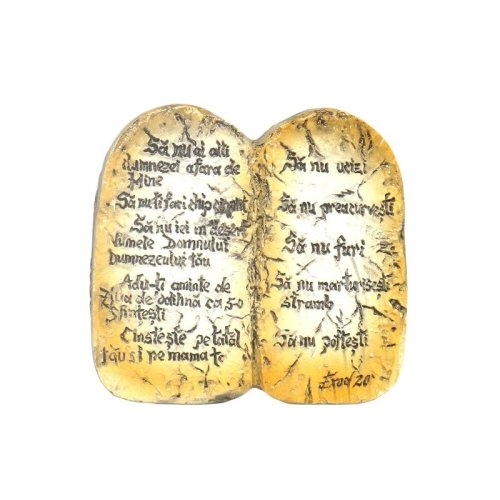 Să nu ai alți
dumnezei afara de
Mine
Să nu-ti faci chip cioplit
Să nu iei in desert
numele Domnului
Dumnezeului tău
Adu-ti aminte de
Ziua de odihnă ca s-o
Sfintești
Cinstește pe tatăl
tău si pe mama ta
Să nu ucizi
Să nu preacurvești
Să nu furi
Să nu marturisesti
stramb
Să nu poftești
Exod 20